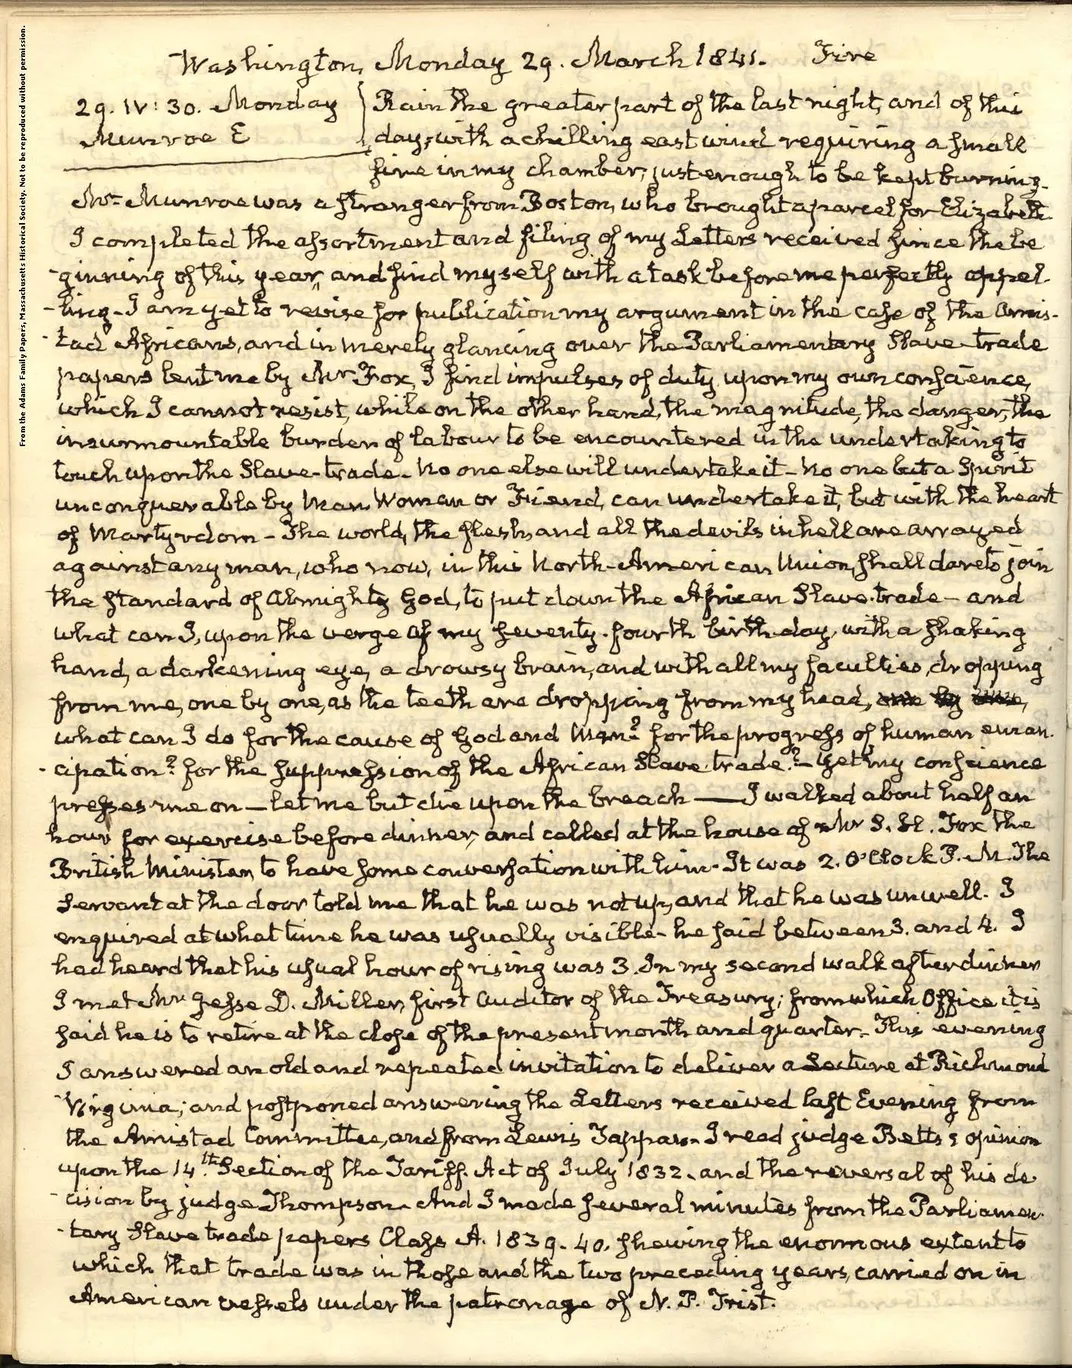 From the Adams Family Papers, Massachusetts Historical Society. Not to be reproduced without permission.
Washington, Monday 29. March 1841. Fire
29. IV: 30. Monday
Munroe E
Rain the greater part of the last night, and of this
day, with a chilling east wind requiring a small
fire in my chamber, just enough to be kept burning.
Mr. Munroe was a stranger from Boston, who brought a parcel for Elizabeth.
I completed the assortment and filing of my Letters received since the be
-ginning of this year, and find myself with a task before me perfectly appal
-ling - I am yet to revise for publication my argument in the case of the Amis-
-tad Africans, and in merely glancing over the Parliamentary Slave-trade
papers lent me by Mr Fox, I find impulses of duty upon my own conscience,
which I cannot resist, while on the other hand, the magnitude, the danger, the
insurmountable burden of labour to be encountered in the undertaking to
touch upon the Slave-trade - No one else will undertake it - No one but a Spirit
unconquerable by Man, Woman or Fiend, can undertake it, but with the heart
of Martyrdom - The world, the flesh, and all the devils in hell are arrayed
against any man, who now, in this North-American Union, shall dare to join
the standard of Almighty God, to put down the African Slave-trade - and
what can I, upon the verge of my seventy-fourth birth-day, with a shaking
hand, a darkening eye, a drowsy brain, and with all my faculties, dropping
from me, one by one, as the teeth are dropping from my head, one by one,
what can I do for the cause of God and Man? for the progress of human eman
-cipation? for the suppression of the African Slave-trade? - Yet my conscience
presses me on — let me but die upon the breach — I walked about half an
hour for exercise before dinner, and called at the house of Mr S. H. Fox the
British Minister, to have some conversation with him - It was 2. O'Clock P. M. The
Servant at the door told me that he was not up, and that he was unwell. I
enquired at what time he was usually visible - he said between 3. and 4. I
had heard that his usual hour of rising was 3. In my second walk after dinner
I met Mr Jesse D. Miller, first Auditor of the Treasury; from which Office it is
said he is to retire at the close of the present month and quarter. This evening
I answered an old and repeated invitation to deliver a Lecture at Richmond
Virginia; and postponed answering the Letters received last Evening from
the Amistad Committee, and from Lewis Tappan - I read judge Betts's opinion
upon the 14th Section of the Tariff Act of July 1832. and the reversal of his de
-cision by judge Thompson - And I made several minutes from the Parliamen
-tary Slave trade papers Class A. 1839. 40. shewing the enormous extent to
which that trade was in those and the two preceding years, carried on in
American vessels under the patronage of N. P. Trist.